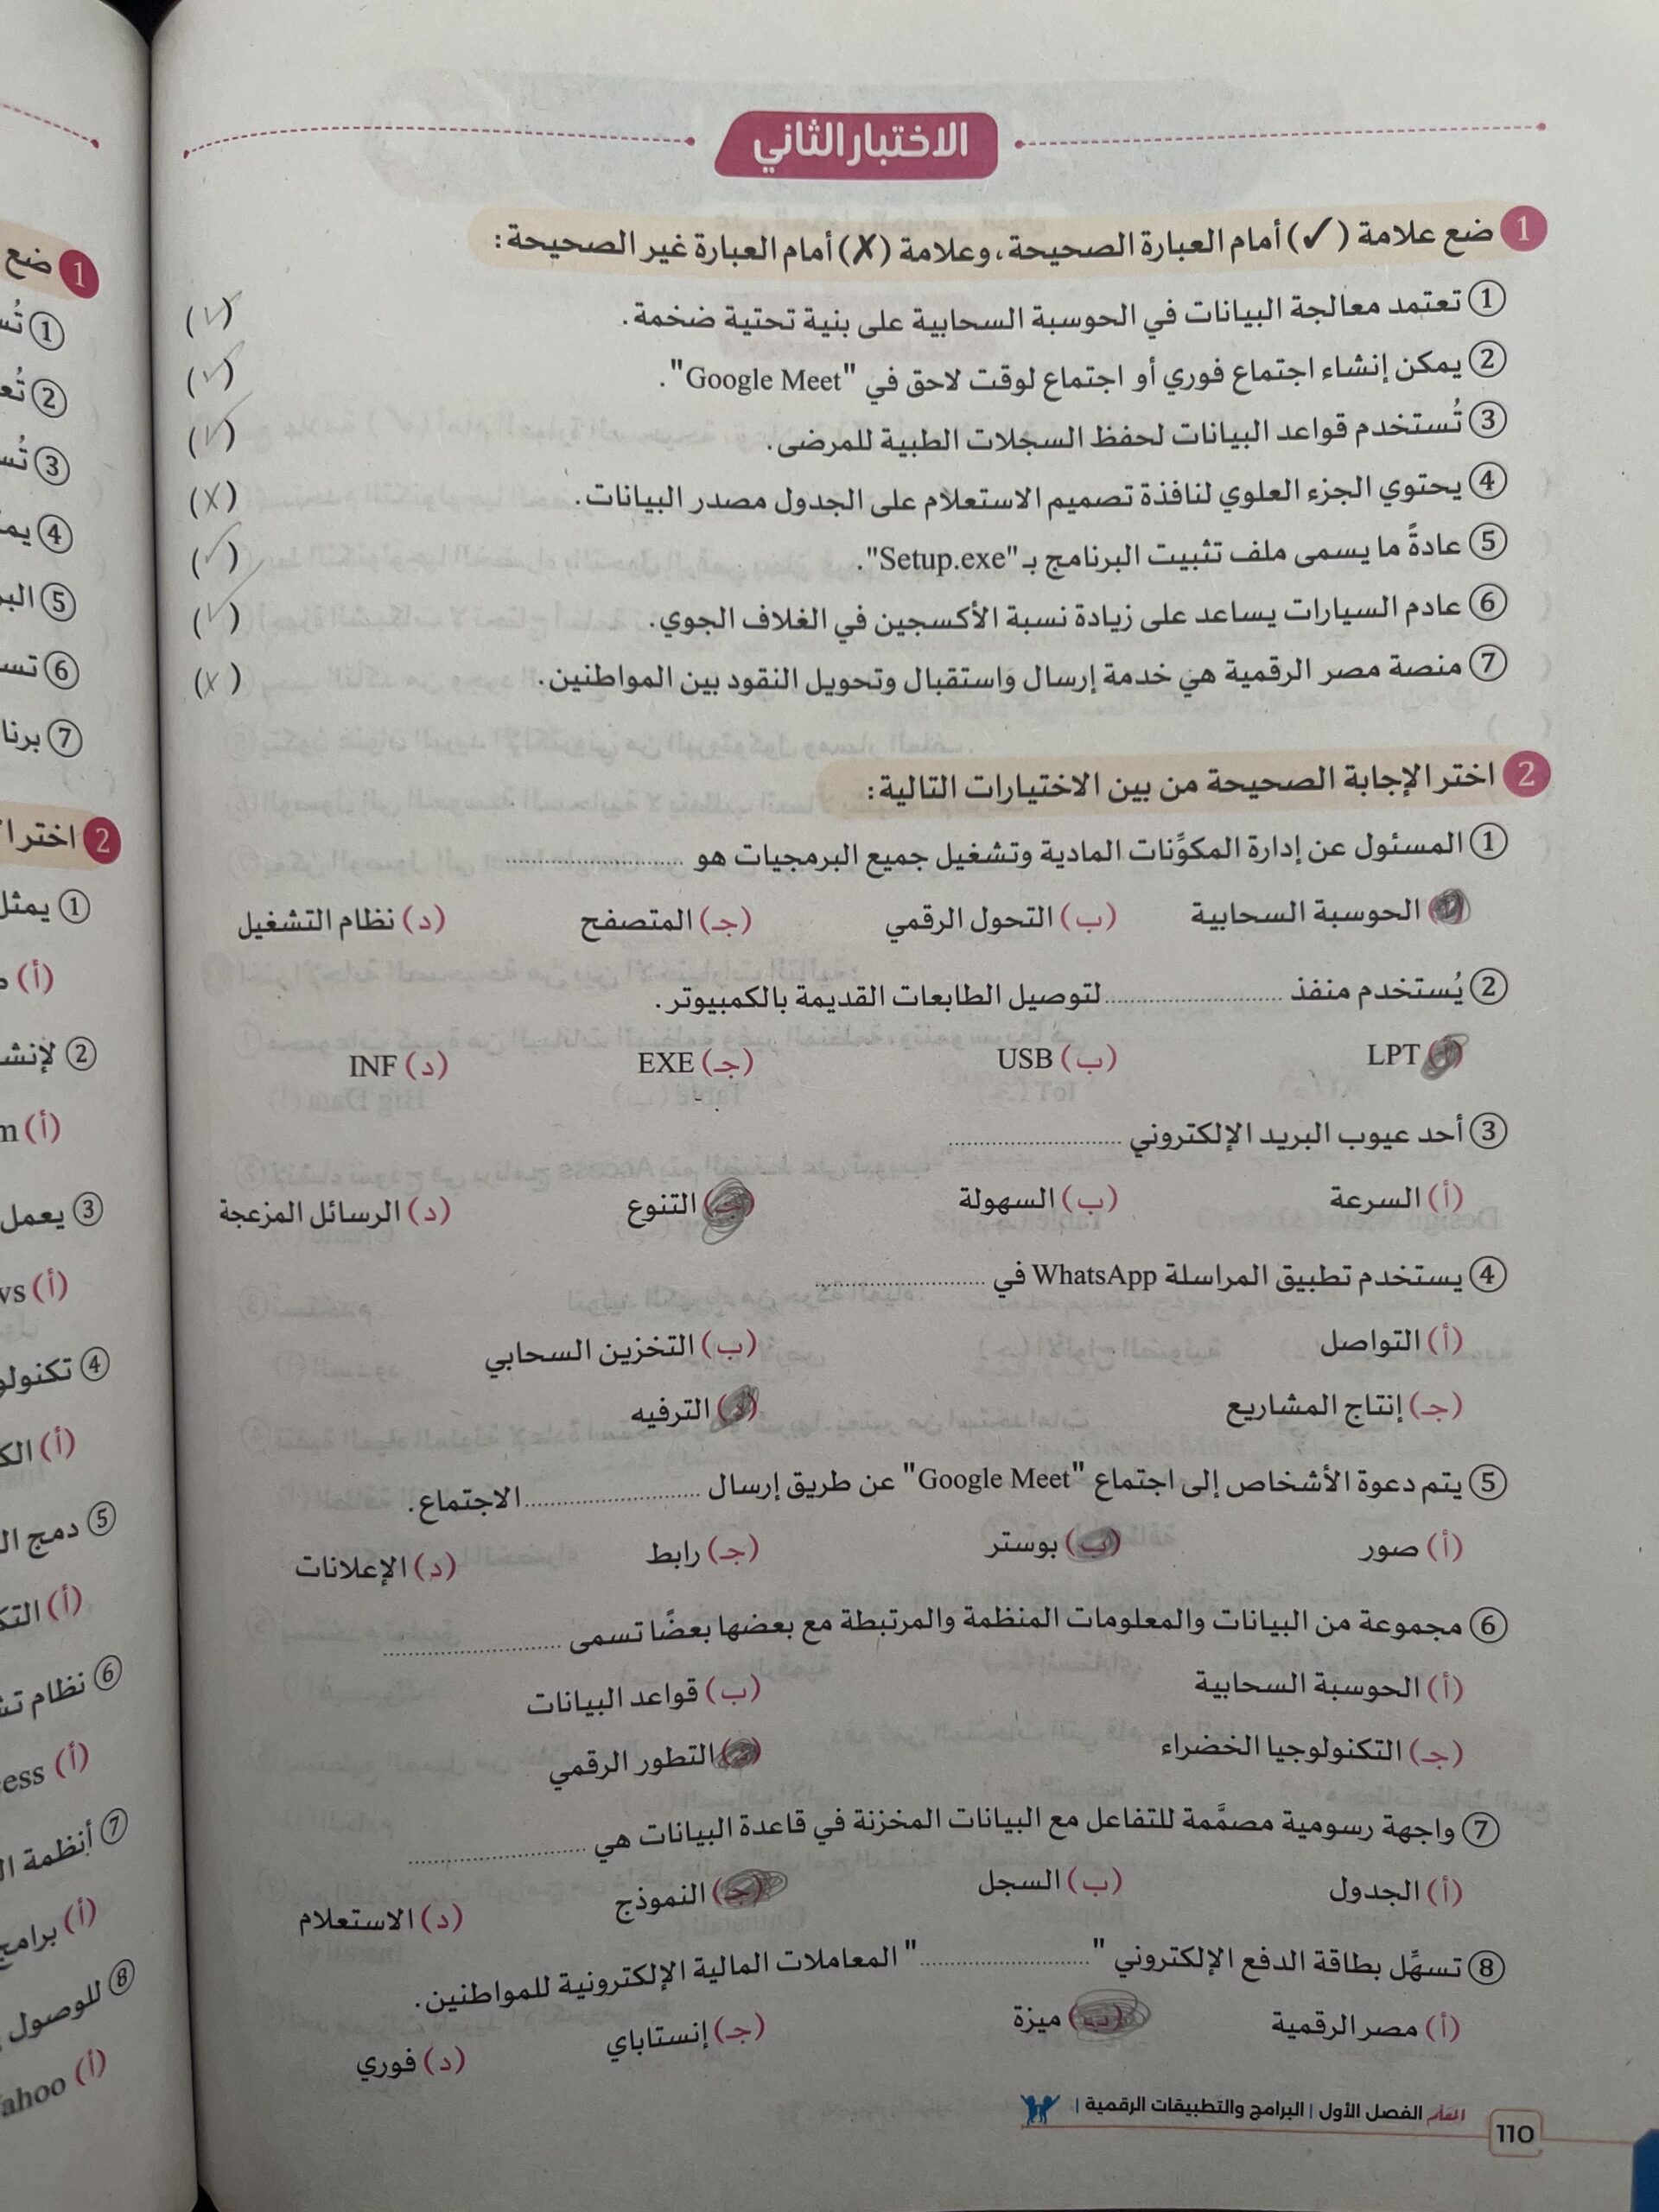 الاختبار الثاني
1 ضع علامة (✓) أمام العبارة الصحيحة، وعلامة (✗) أمام العبارة غير الصحيحة:
① تعتمد معالجة البيانات في الحوسبة السحابية على بنية تحتية ضخمة. (✓)
② يمكن إنشاء اجتماع فوري أو اجتماع لوقت لاحق في "Google Meet". (✓)
③ تُستخدم قواعد البيانات لحفظ السجلات الطبية للمرضى. (✓)
④ يحتوي الجزء العلوي لنافذة تصميم الاستعلام على الجدول مصدر البيانات. (✗)
⑤ عادةً ما يسمى ملف تثبيت البرنامج بـ "Setup.exe". (✓)
⑥ عادم السيارات يساعد على زيادة نسبة الأكسجين في الغلاف الجوي. (✓)
⑦ منصة مصر الرقمية هي خدمة إرسال واستقبال وتحويل النقود بين المواطنين. (✗)
2 اختر الإجابة الصحيحة من بين الاختيارات التالية:
① المسئول عن إدارة المكوِّنات المادية وتشغيل جميع البرمجيات هو ..............................
(أ) الحوسبة السحابية (ب) التحول الرقمي (جـ) المتصفح (د) نظام التشغيل
② يُستخدم منفذ .............................. لتوصيل الطابعات القديمة بالكمبيوتر.
(أ) LPT (ب) USB (جـ) EXE (د) INF
③ أحد عيوب البريد الإلكتروني ..............................
(أ) السرعة (ب) السهولة (جـ) التنوع (د) الرسائل المزعجة
④ يستخدم تطبيق المراسلة WhatsApp في ..............................
(أ) التواصل (ب) التخزين السحابي
(جـ) إنتاج المشاريع (د) الترفيه
⑤ يتم دعوة الأشخاص إلى اجتماع "Google Meet" عن طريق إرسال .............................. الاجتماع.
(أ) صور (ب) بوستر (جـ) رابط (د) الإعلانات
⑥ مجموعة من البيانات والمعلومات المنظمة والمرتبطة مع بعضها بعضًا تسمى ..............................
(أ) الحوسبة السحابية (ب) قواعد البيانات
(جـ) التكنولوجيا الخضراء (د) التطور الرقمي
⑦ واجهة رسومية مصمَّمة للتفاعل مع البيانات المخزنة في قاعدة البيانات هي ..............................
(أ) الجدول (ب) السجل (جـ) النموذج (د) الاستعلام
⑧ تسهِّل بطاقة الدفع الإلكتروني ".............................." المعاملات المالية الإلكترونية للمواطنين.
(أ) مصر الرقمية (ب) ميزة (جـ) إنستاباي (د) فوري
110 الفصل الأول | البرامج والتطبيقات الرقمية |
1 ضع
①
②
③
④
⑤
⑥
⑦
2
① يمثل
(أ)
②
(أ)
③ يعمل
(أ)
④
(أ)
⑤ دمج
(أ)
⑥ نظام
(أ)
⑦ أنظمة
(أ) برامج
⑧ للوصول
(أ)